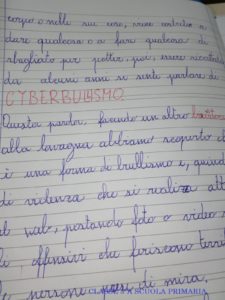 corpo o nelle sue cose, viene costretto a
dare qualcosa o a fare qualcosa di
sbagliato per poter, poi, essere
da alcuni anni si sente parlare di
CYBERBULLISMO.
Questa parola, facendo un altro
alla lavagna abbiamo scoperto ch
è una forma di bullismo e, quind
di violenza che si realizza att
il web, postando foto o video s
offensivi che feriscono terri
le persone prese di mira.
CLASSE SCUOLA PRIMARIA